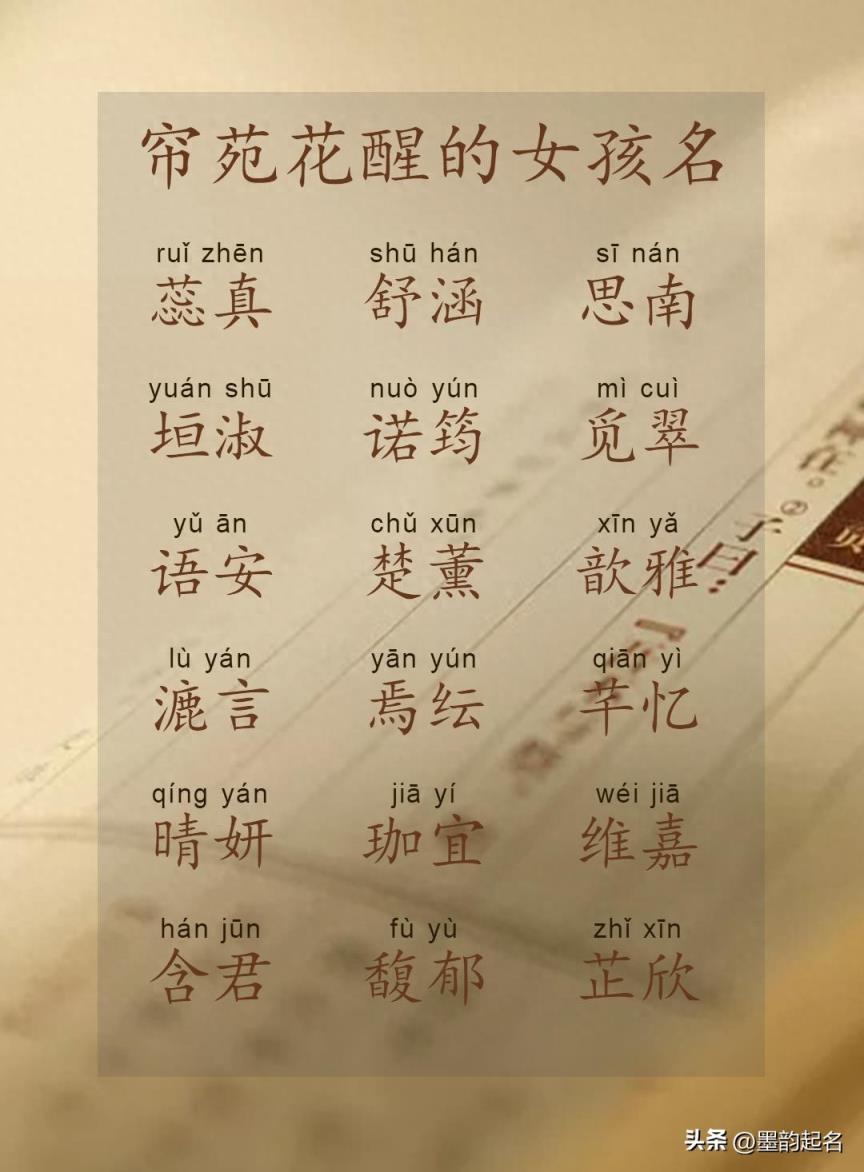 帘苑花醒的女孩名
ruǐ zhēn shū hán sī nán
蕊真 舒涵 思南
yuán shū nuò yún mì cuì
垣淑 诺筠 觅翠
yǔ ān chǔ xūn xīn yǎ
语安 楚薰 歆雅
lù yán yān yún qiān yì
漉言 焉纭 芊忆
qíng yán jiā yí wéi jiā
晴妍 珈宜 维嘉
hán jūn fù yù zhǐ xīn
含君 馥郁 芷欣
子曰：
头条 @墨韵起名